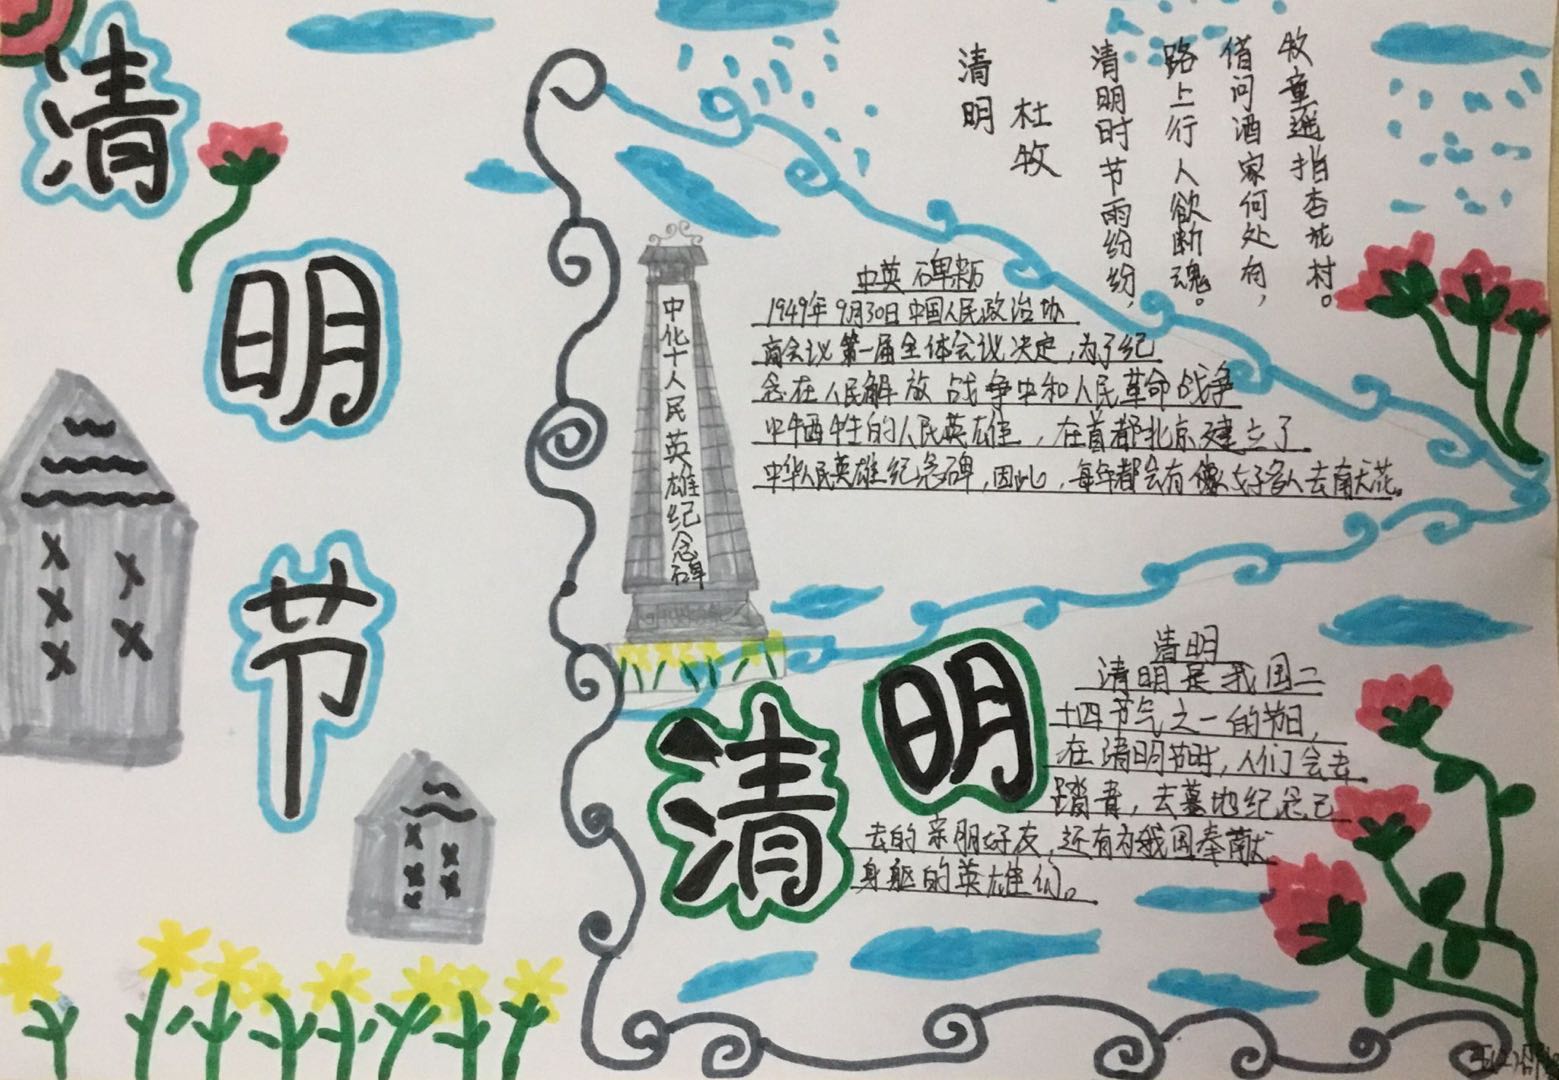 清明节
清明
杜牧
清明时节雨纷纷,
路上行人欲断魂。
借问酒家何处有,
牧童遥指杏花村。
中英碑
1949年9月30日中国人民政治协
商会议第一届全体会议决定,为了纪
念在人民解放战争中和人民革命战争
中牺牲的人民英雄,在首都北京建立了
中华人民英雄纪念碑,因此,每年都会有很多人去献花。
中化十人民英雄纪念碑
清明
清明
清明是我国二
十四节气之一的节日,
在清明节时,人们会去
踏青,去墓地纪念已
去的亲朋好友,还有为我国奉献
身躯的英雄们。